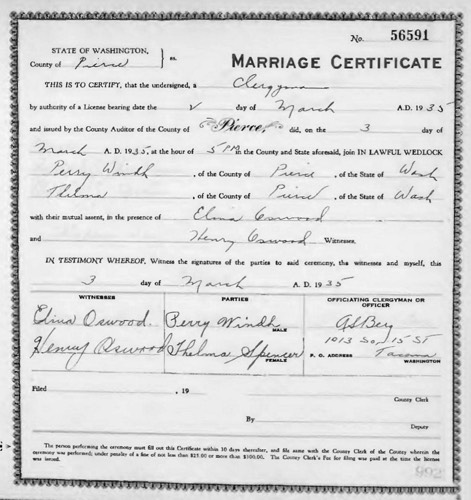 No. 56591
STATE OF WASHINGTON,
County of Pierce } ss.
MARRIAGE CERTIFICATE
THIS IS TO CERTIFY, that the undersigned, a Clergyman
by authority of a License bearing date the 2 day of March A.D. 1935
and issued by the County Auditor of the County of Pierce, did, on the 3 day of
March A. D. 1935, at the hour of 5 PM in the County and State aforesaid, join IN LAWFUL WEDLOCK
Perry Windh, of the County of Pierce, of the State of Wash
Thelma, of the County of Pierce, of the State of Wash
with their mutual assent, in the presence of Elina Oswood
and Henry Oswood Witnesses.
IN TESTIMONY WHEREOF, Witness the signatures of the parties to said ceremony, the witnesses and myself, this
3 day of March A. D. 1935
WITNESSES PARTIES OFFICIATING CLERGYMAN OR OFFICER
Elina Oswood. Perry Windh MALE
Henry Oswood Thelma Spencer FEMALE
1013 So. 15 St
P. O. ADDRESS Tacoma WASHINGTON
Filed , 19
County Clerk
By
Deputy
The person performing the ceremony must fill out this Certificate within 30 days thereafter, and file same with the County Clerk of the County wherein the
ceremony was performed; under penalty of a fine of not less than $25.00 or more than $100.00. The County Clerk's Fee for filing was paid at the time the license
was issued.
992